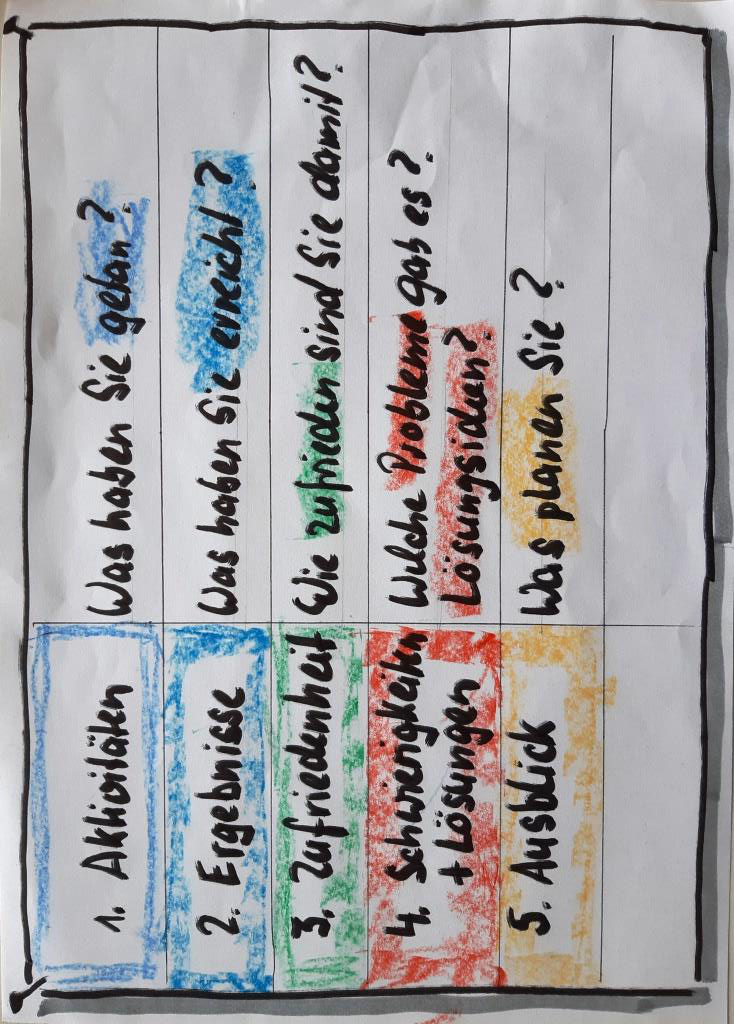 1. Aktivitäten
Was haben Sie getan?
2. Ergebnisse
Was haben Sie erreicht?
3. Zufriedenheit
Wie zufrieden sind Sie damit?
4. Schwierigkeiten
+ Lösungen
Welche Probleme gab es?
Lösungsideen?
5. Ausblick
Was planen Sie?